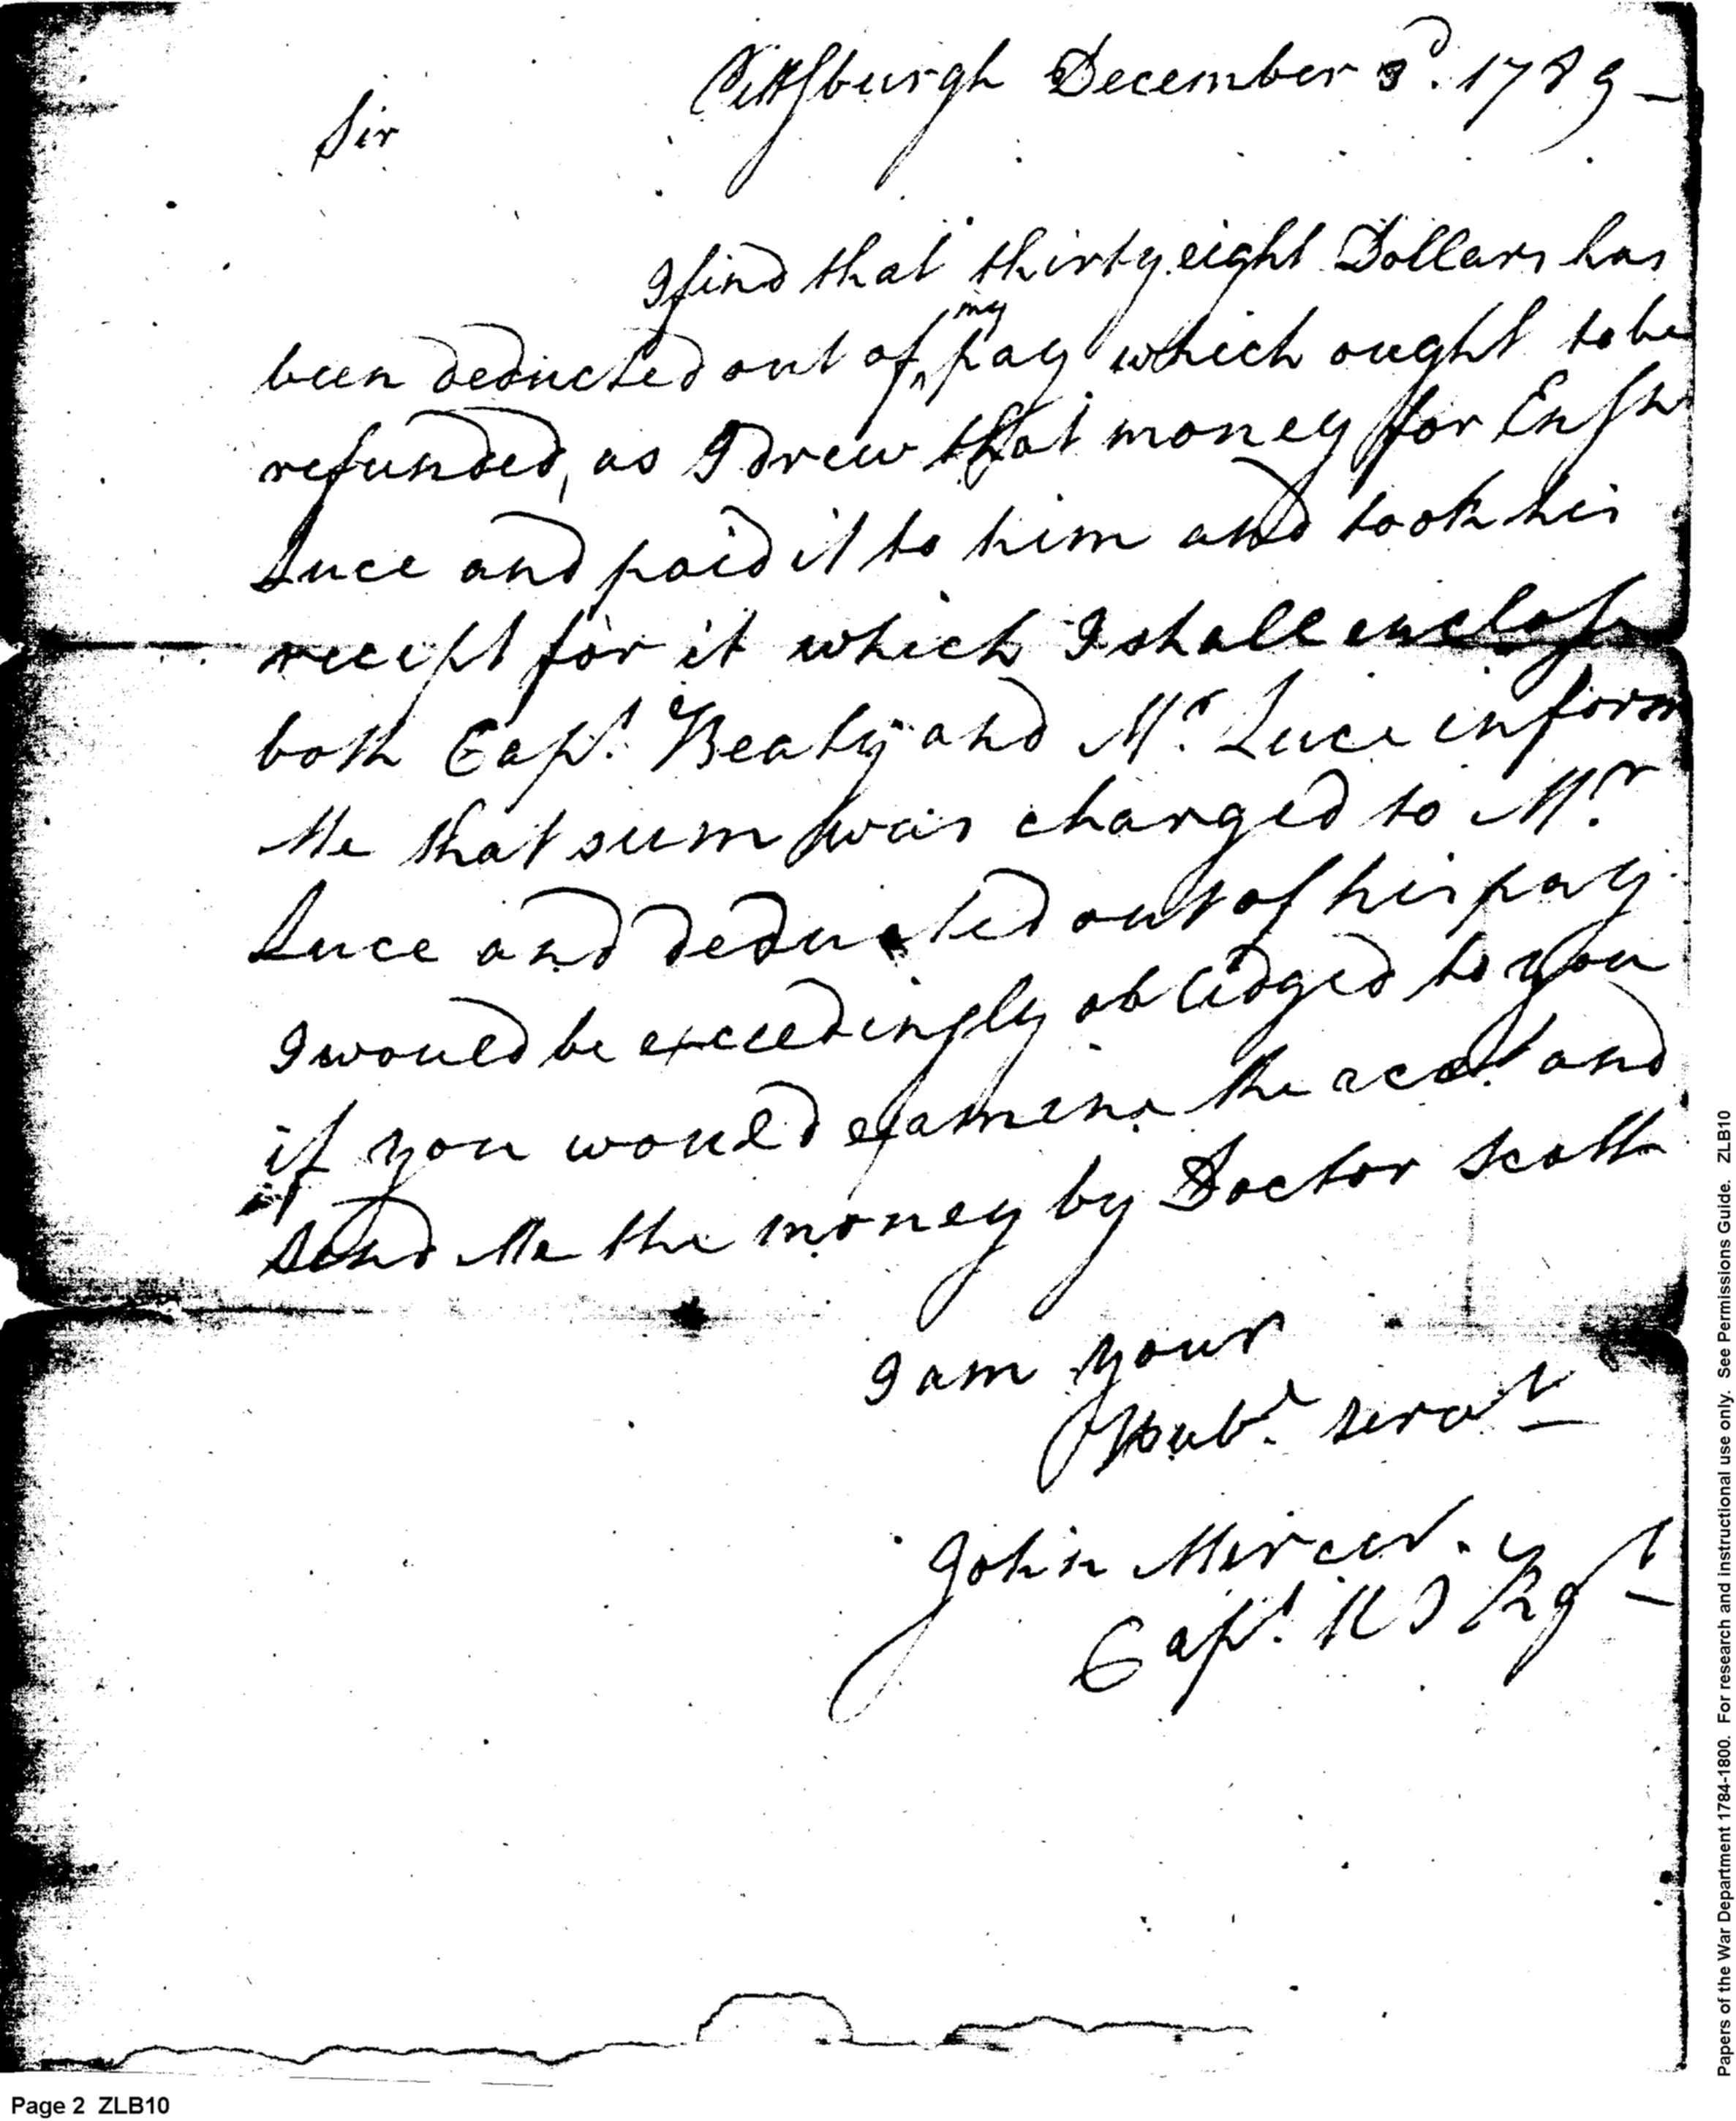 Pittsburgh December 3d. 1789 -
Sir
I find that thirty eight Dollars has
been deducted out of my pay which ought to be
refunded, as I drew that money for Ensn
Luce and paid it to him and took his
recipt for it which I shall enclose
both Capt. Beaty and Mr. Luce inform
Me that sum was charged to Mr.
Luce and deducted out of his pay
I would be exceedingly oblidged to you
if you would examine the acct. and
send Me the money by Doctor Scott
I am your
Hube. servt
John Mercer.
Capt. US Rgt
Page 2 ZLB10
Papers of the War Department 1784-1800. For research and instructional use only. See Permissions Guide. ZLB10